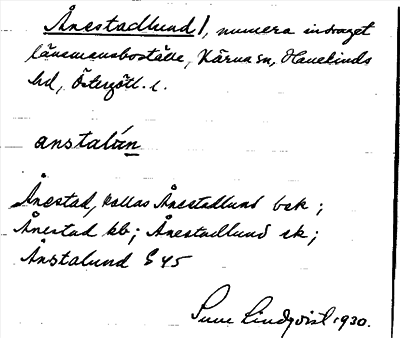 Ånestadlund/, numera indraget
länsmansboställe, Kärna sn, Hanekinds
hd, Östergötl. l.
anstalún
Ånestad, kallas Ånestadlund bsk;
Ånestad kb; Ånestadlund sk;
Ånstalund G 45
Sune Lindqvist 1930.